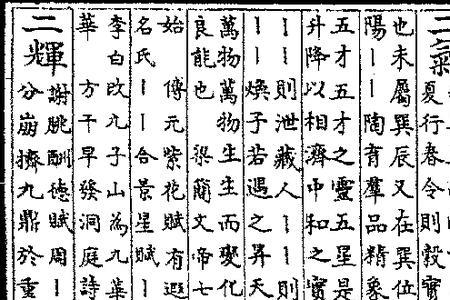 二氣夏行春令則穀實
也未屬巽辰又在巽位
陽丨丨陶育羣品精象
五才五才之靈五星是
升降以相濟中和之實
丨丨則泄藏人丨丨則
丨丨煥子若遇之昇天
萬物萬物生生而變化
良能也 梁簡文帝七
始 傅元紫花賦有遐
名氏丨丨合景星賦丨
李白改九子山為九華
華 方干早發洞庭詩
二輝謝朓酬德賦周丨
分崩擠九鼎於重